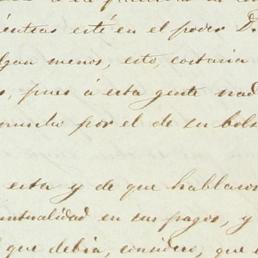 mientras esté en el poder D.
algan menos, esto, costaria
s, pues á esta gente nad
mucho por el de su bols
esta y de que hablaron
untualidad en sus pagos, y
que debria, considero, que